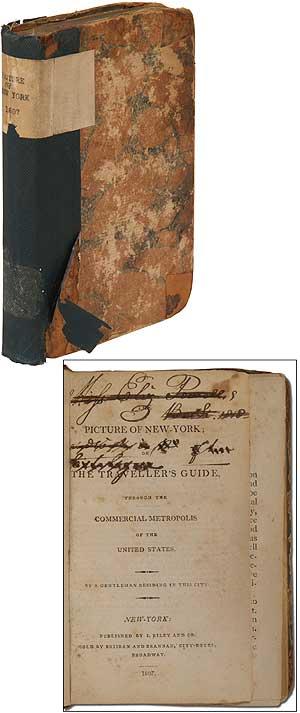 PICTURE
OF
NEW YORK
1807
Miss Eliz
Book, 1808
PICTURE OF NEW-YORK;
OR
THE TRAVELLER'S GUIDE,
THROUGH THE
COMMERCIAL METROPOLIS
OF THE
UNITED STATES.
BY A GENTLEMAN RESIDING IN THIS CITY.
NEW-YORK:
PUBLISHED BY I. RILEY AND CO.
SOLD BY BRISBAN AND BRANNAN, CITY-HOTEL,
BROADWAY.
1807.